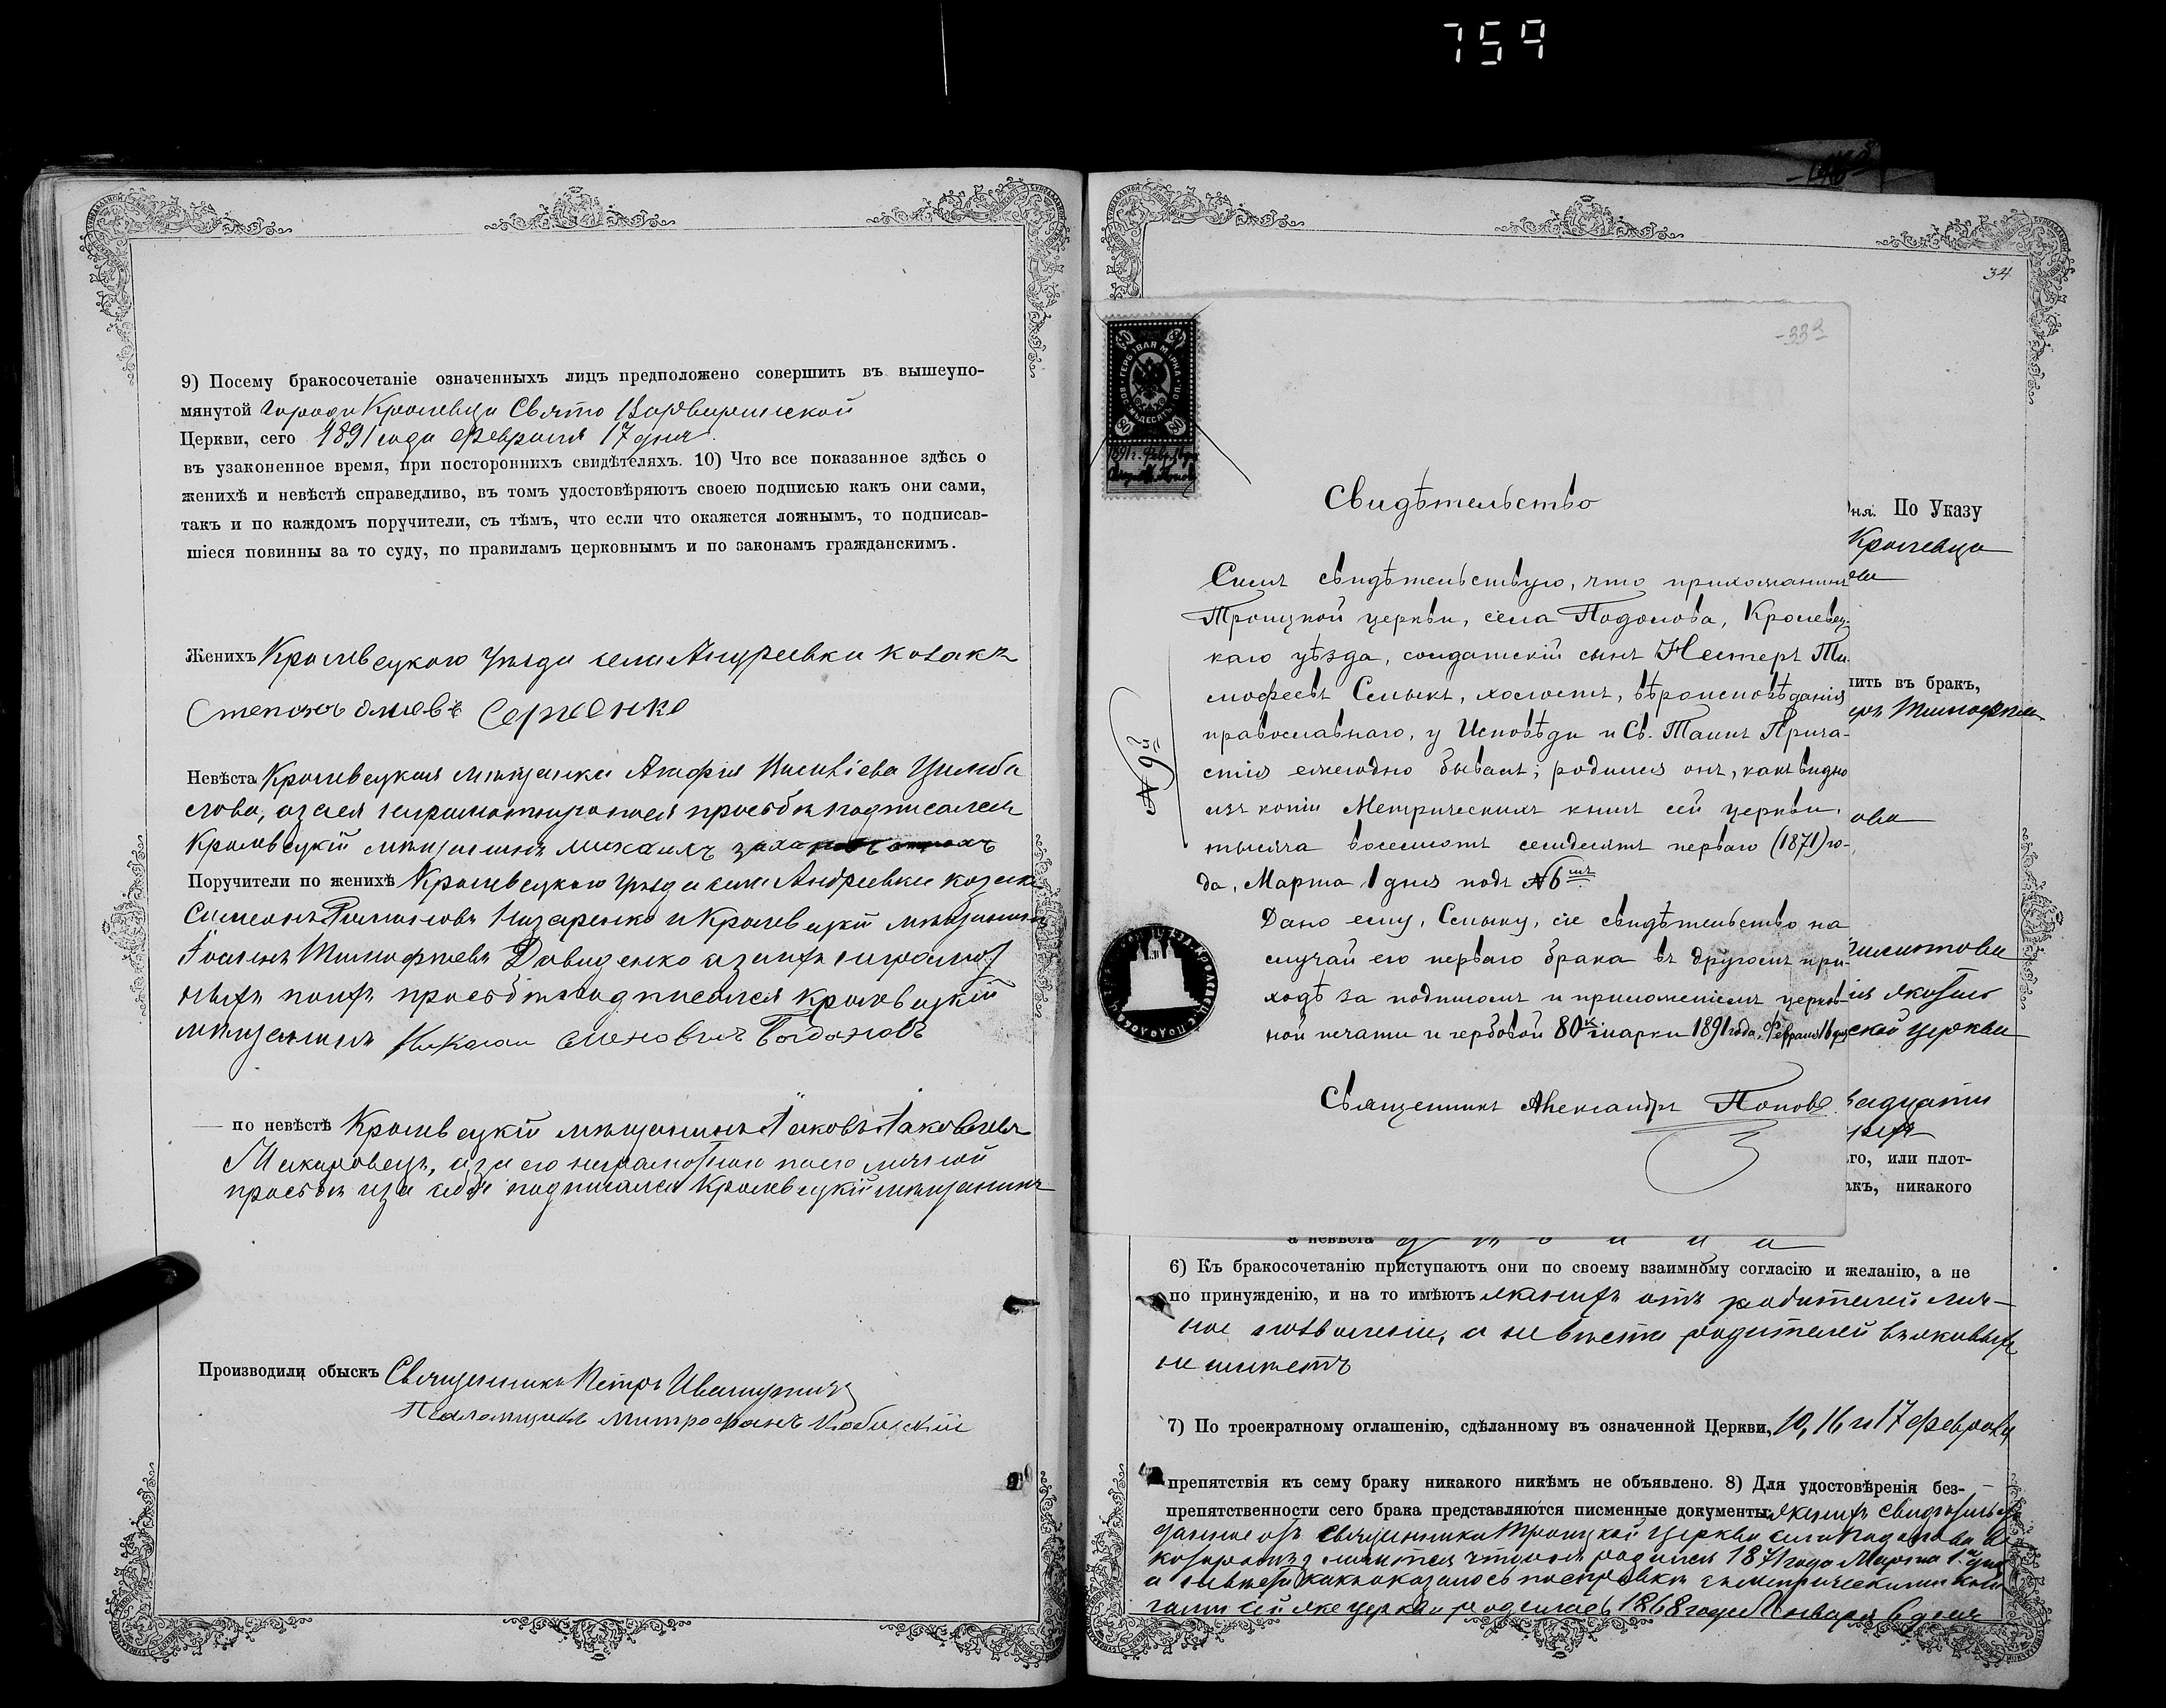 759
9) Посему бракосочетаніе означенныхъ лицъ предположено совершить въ вышеупо-
мянутой города Кролевца Свято Варваринской
Церкви, сего 1891 года февраля 17 дня.
въ узаконенное время, при постороннихъ свидѣтеляхъ. 10) Что все показанное здѣсь о
женихѣ и невѣстѣ справедливо, въ томъ удостовѣряютъ своею подписью какъ они сами,
такъ и по каждомъ поручители, съ тѣмъ, что если что окажется ложнымъ, то подписав-
шіеся повинны за то суду, по правиламъ церковнымъ и по законамъ гражданскимъ.
Женихъ Кролевецкаго уѣзда села Андреевки козакъ
Степанъ
Невѣста Кролевецкая мѣщанка Агафія
а за нея неграмотную по ея прозьбѣ подписался
Кролевецкій мѣщанинъ Михаилъ
Поручители по женихѣ Кролевецкаго уѣзда села Андреевки козакъ
Симеонъ Назаренко и Кролевецкій мѣщанинъ
Тимофѣевъ Давиденко а за нихъ неграмот
ныхъ по ихъ прозьбѣ подписался Кролевецкій
мѣщанинъ Николай
по невѣстѣ Кролевецкій мѣщанинъ Яковъ Яковлевъ
Макаровецъ, а за его неграмотнаго по его личной
прозьбѣ и за себя подписался Кролевецкій мѣщанинъ
Производили обыскъ Священникъ Петръ
Псаломщикъ Митрофанъ
34
-33-
ГЕРБОВАЯ МАРКА
80
1891 г. Февр. 16 дня
Свидѣтельство
№ 9й
Симъ свидѣтельствую, что прихожанинъ
Троицкой церкви, села Подолова, Кролевец-
каго уѣзда, солдатскій сынъ Нестеръ Ти-
мофеевъ Смыкъ, холостъ, вѣроисповѣданія
православнаго, у Исповѣди и Св. Таинъ Прича-
стія ежегодно бываетъ; родился онъ, какъ видно
изъ копіи Метрическихъ книгъ сей церкви,
тысяча восемьсотъ семьдесятъ перваго (1871) го-
да, Марта 1 дня подъ №6мъ.
Дано ему, Смыку, сіе свидѣтельство на
случай его перваго брака въ другомъ при-
ходѣ за подписомъ и приложеніемъ церков-
ной печати и гербовой 80 к. марки 1891 года, Февраля 16 дня
Священникъ Александръ Поповъ.
дня. По Указу
Кролевца
ить въ брак,
Тимофѣ
ской церкви
го, или плот-
акъ, никакого
а невѣста
6) Къ бракосочетанію приступаютъ они по своему взаимному согласію и желанію, а не
по принужденію, и на то имѣютъ женихъ отъ родителей лич-
ное позволеніе, а невѣста родителей въ живыхъ
не имѣетъ
7) По троекратному оглашенію, сдѣланному въ означенной Церкви, 10, 16 и 17 февраля
препятствія къ сему браку никакого никѣмъ не объявлено. 8) Для удостовѣренія без-
препятственности сего брака представляются писменные документы: женихъ свидѣтельст
данное отъ священника Троицкой церкви села Подолова въ
значится что онъ родился 1871 года Марта 1 дня
а невѣста какъ оказалось по справкѣ съ метрическими кни
гами сей же церкви родилась 1868 года Января 6 дня